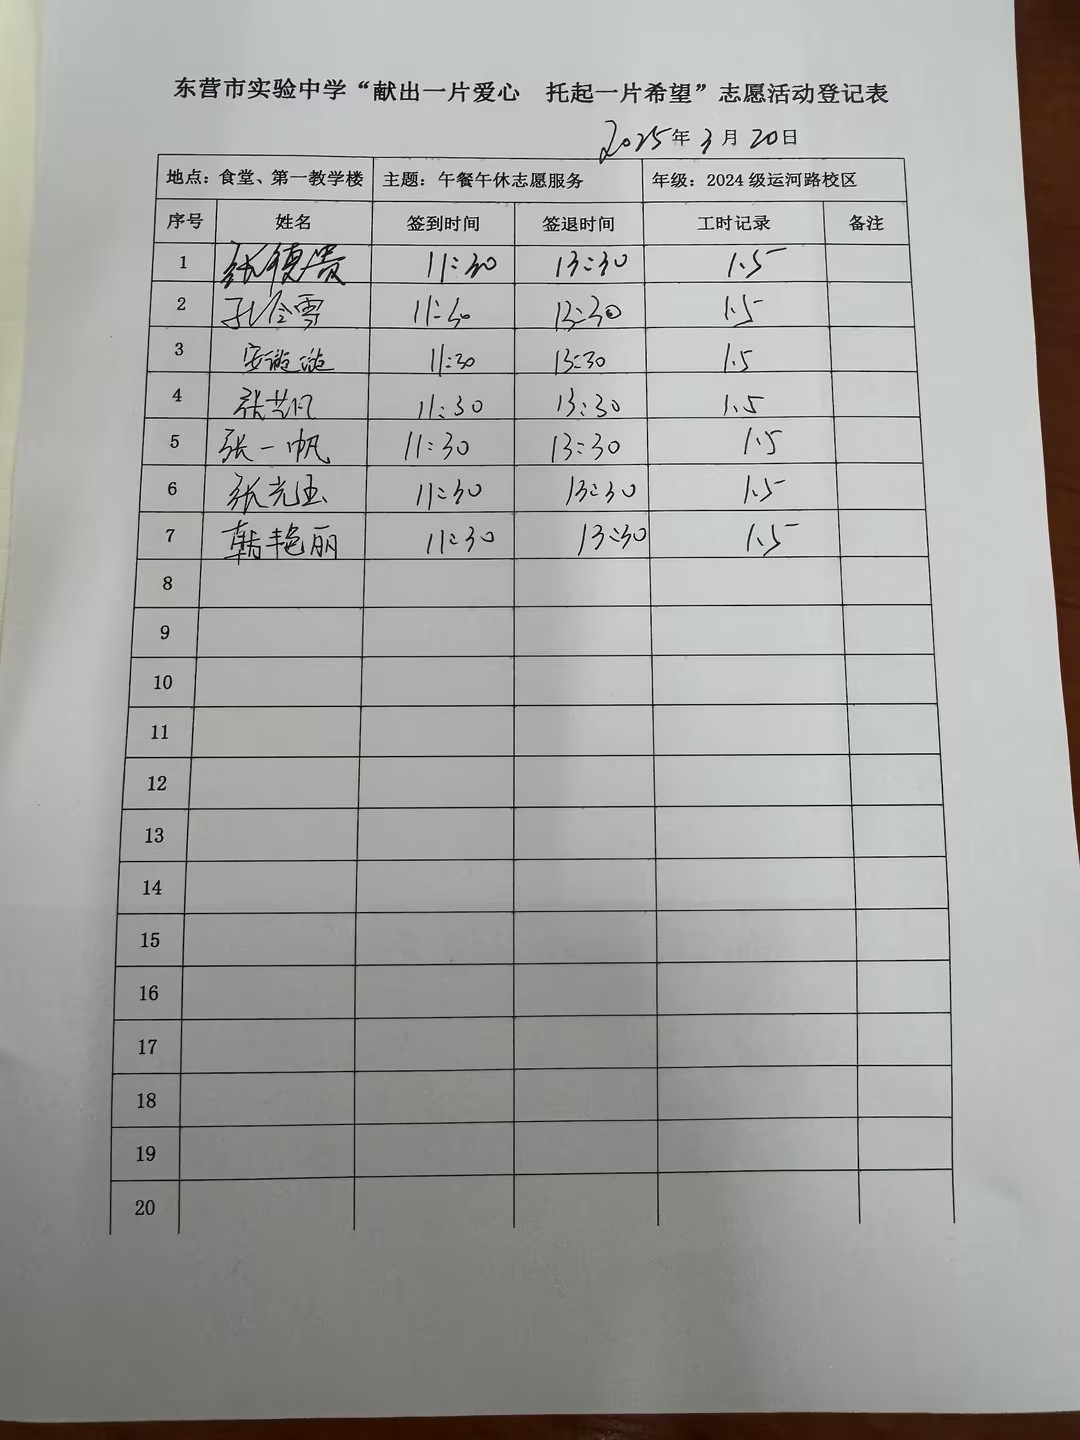 东营市实验中学“献出一片爱心 托起一片希望”志愿活动登记表
2025年3月20日
地点：食堂、第一教学楼 主题：午餐午休志愿服务 年级：2024级运河路校区
序号 姓名 签到时间 签退时间 工时记录 备注
1 张德贵 11:30 13:30 1.5
2 孔令雪 11:30 13:30 1.5
3 安璇璇 11:30 13:30 1.5
4 张艺凡 11:30 13:30 1.5
5 张一帆 11:30 13:30 1.5
6 张光玉 11:30 13:30 1.5
7 韩艳丽 11:30 13:30 1.5
8
9
10
11
12
13
14
15
16
17
18
19
20